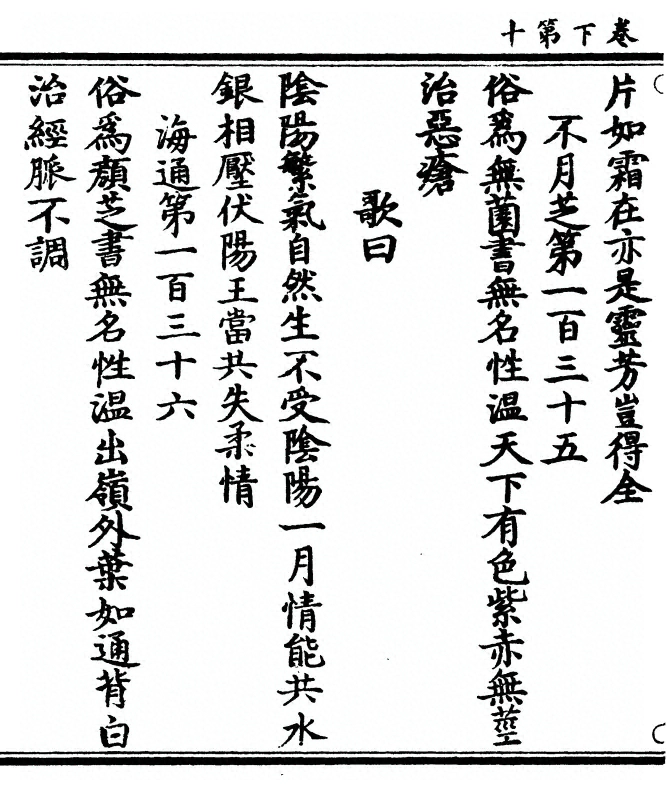 卷下第十
片如霜在亦是靈芳豈得全
不月芝第一百三十五
俗為無菌書無名性溫天下有色紫赤無莖
治惡瘡
歌曰
陰陽繁氣自然生不受陰陽一月情能共水
銀相壓伏陽王當共失柔情
海通第一百三十六
俗為顏芝書無名性溫出嶺外葉如通背白
治經脈不調